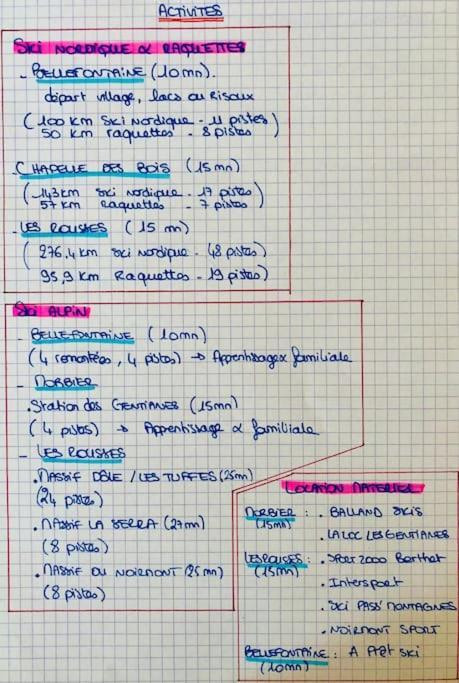 ACTIVITES
SKI NORDIQUE & RAQUETTES
- BELLEFONTAINE (10mn).
départ village, lacs ou Risoux
(100 km Ski Nordique - 11 pistes
50 km raquettes - 8 pistes)
. CHAPELLE DES BOIS (15mn)
(143km ski nordique - 17 pistes
57 km Raquettes - 7 pistes)
- LES ROUSSES (15 mn)
(276,4 km ski nordique - 48 pistes
95,9 km Raquettes - 19 pistes)
SKI ALPIN
- BELLEFONTAINE (10mn)
(4 remontées, 4 pistes) → Apprentissage & familiale
- MORBIER
. Station des GENTIANES (15mn)
(4 pistes) → Apprentissage & familiale
- LES ROUSSES
. MASSIF DÔLE / LES TUFFES (25mn)
(24 pistes)
. MASSIF LA SERRA (27mn)
(8 pistes)
. MASSIF DU NOIRMONT (25mn)
(8 pistes)
LOCATION MATERIEL
MORBIER : . BALLAND SKIS
(15mn)
. LA LOC LES GENTIANES
LES ROUSES : . SPORT 2000 Berthet
(15mn)
. Intersport
. SKI PASS' MONTAGNES
. NOIRMONT SPORT
BELLEFONTAINE : A Prêt Ski
(10mn)